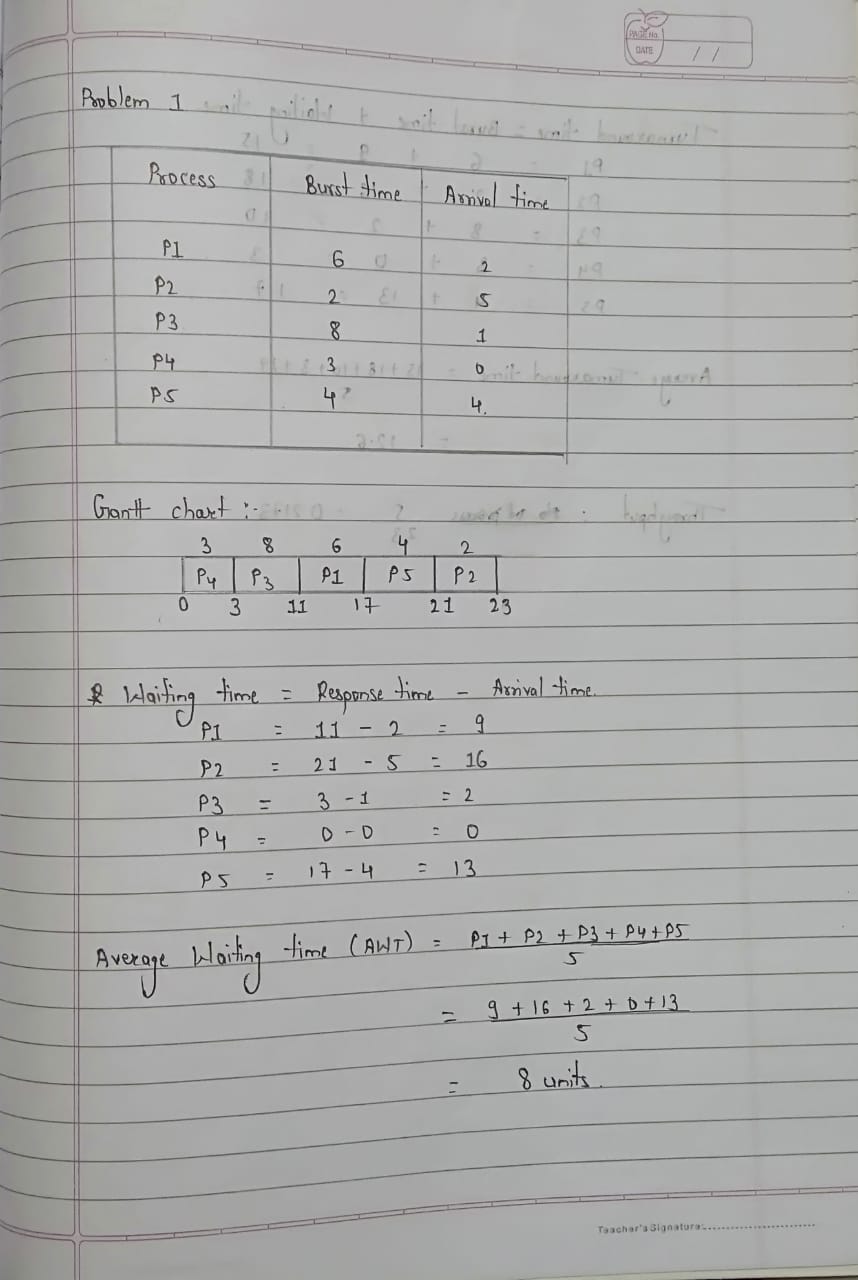 PAGE No.
DATE / /
Problem 1
Process Burst time Arrival time
P1 6 2
P2 2 5
P3 8 1
P4 3 0
P5 4 4.
Gantt chart :-
3 8 6 4 2
P4 P3 P1 P5 P2
0 3 11 17 21 23
Waiting time = Response time - Arrival time.
P1 = 11 - 2 = 9
P2 = 21 - 5 = 16
P3 = 3 - 1 = 2
P4 = 0 - 0 = 0
P5 = 17 - 4 = 13
Average Waiting time (AWT) = P1 + P2 + P3 + P4 + P5
5
= 9 + 16 + 2 + 0 + 13
5
= 8 units.
Teacher's Signature: